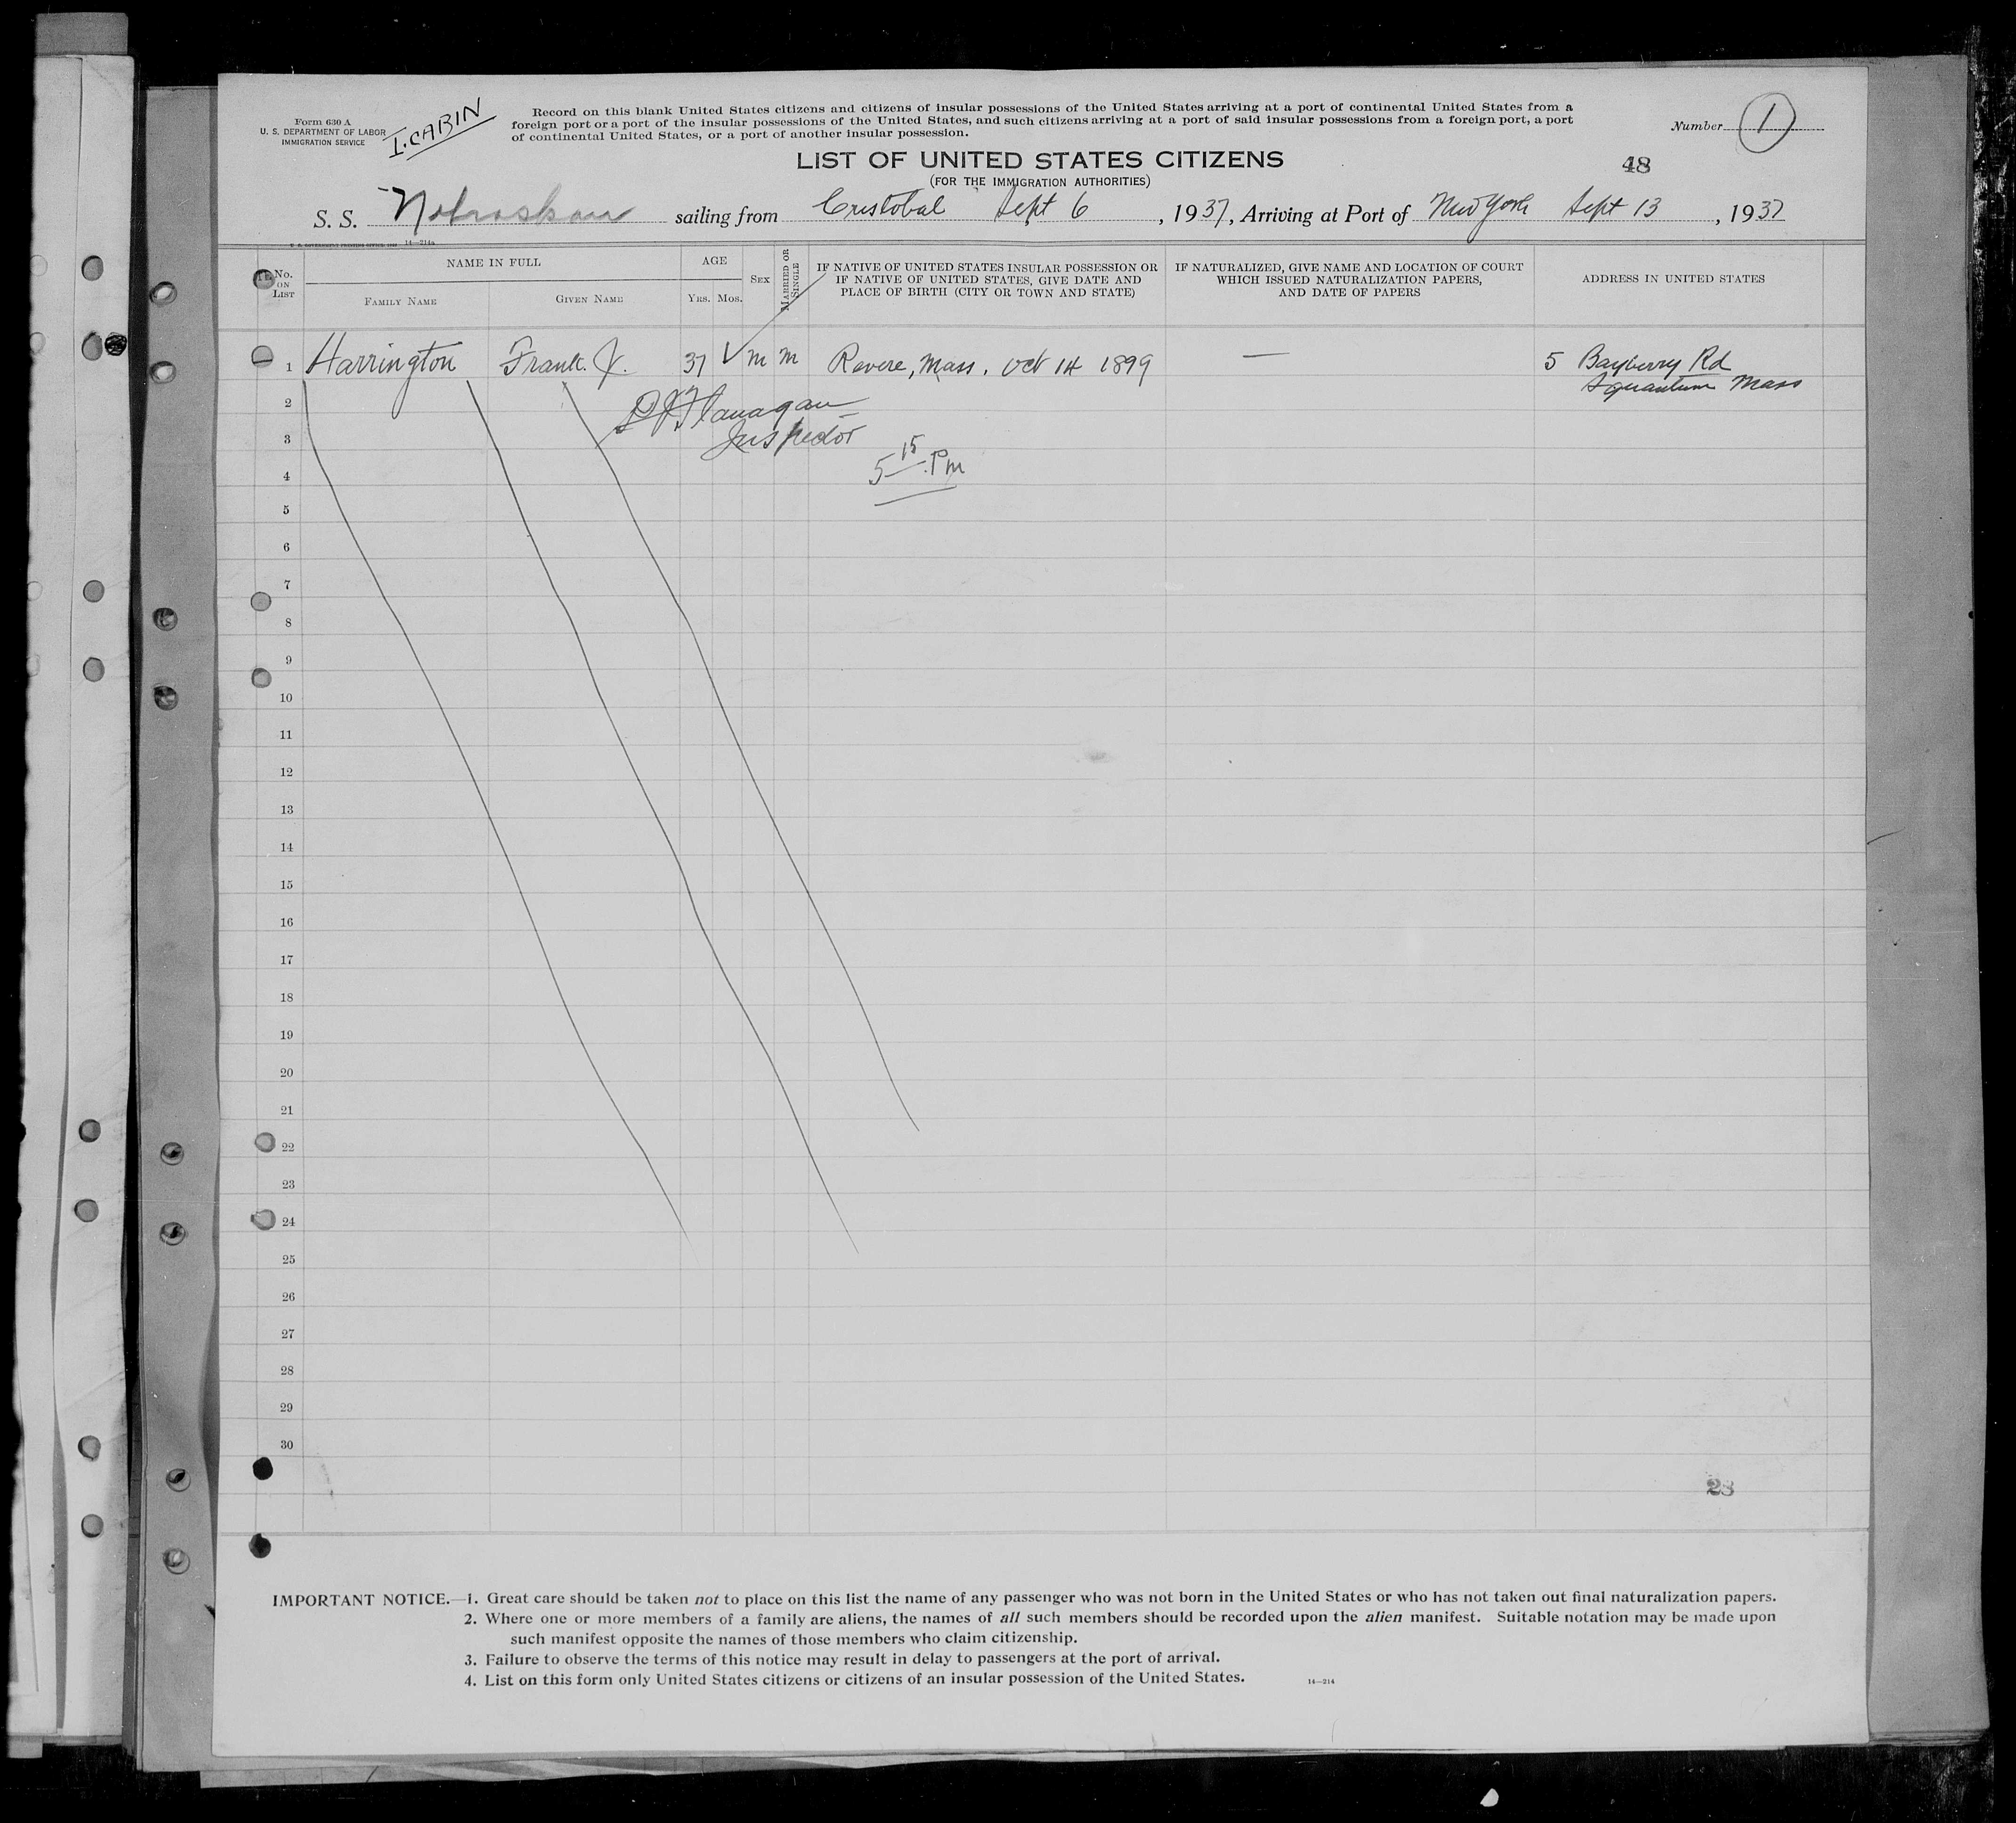 Form 630 A
U. S. DEPARTMENT OF LABOR
IMMIGRATION SERVICE
I. CABIN
Record on this blank United States citizens and citizens of insular possessions of the United States arriving at a port of continental United States from a
foreign port or a port of the insular possessions of the United States, and such citizens arriving at a port of said insular possessions from a foreign port, a port
of continental United States, or a port of another insular possession.
Number 1
LIST OF UNITED STATES CITIZENS
48
(FOR THE IMMIGRATION AUTHORITIES)
S. S. Nebraskan sailing from Cristobal Sept 6, 1937, Arriving at Port of New York Sept 13, 1937
14—214a
No. ON LIST
NAME IN FULL
FAMILY NAME
GIVEN NAME
AGE
YRS. MOS.
SEX
MARRIED OR SINGLE
IF NATIVE OF UNITED STATES INSULAR POSSESSION OR
IF NATIVE OF UNITED STATES, GIVE DATE AND
PLACE OF BIRTH (CITY OR TOWN AND STATE)
IF NATURALIZED, GIVE NAME AND LOCATION OF COURT
WHICH ISSUED NATURALIZATION PAPERS,
AND DATE OF PAPERS
ADDRESS IN UNITED STATES
1 Harrington Frank. J. 37 ✓ m m Revere, Mass. Oct 14 1899 — 5 Bayberry Rd
Squantum Mass
2 Flanagan
3 Inspector
4 5 15 Pm
5
6
7
8
9
10
11
12
13
14
15
16
17
18
19
20
21
22
23
24
25
26
27
28
29
30
28
IMPORTANT NOTICE.—1. Great care should be taken not to place on this list the name of any passenger who was not born in the United States or who has not taken out final naturalization papers.
2. Where one or more members of a family are aliens, the names of all such members should be recorded upon the alien manifest. Suitable notation may be made upon
such manifest opposite the names of those members who claim citizenship.
3. Failure to observe the terms of this notice may result in delay to passengers at the port of arrival.
4. List on this form only United States citizens or citizens of an insular possession of the United States.
14—214